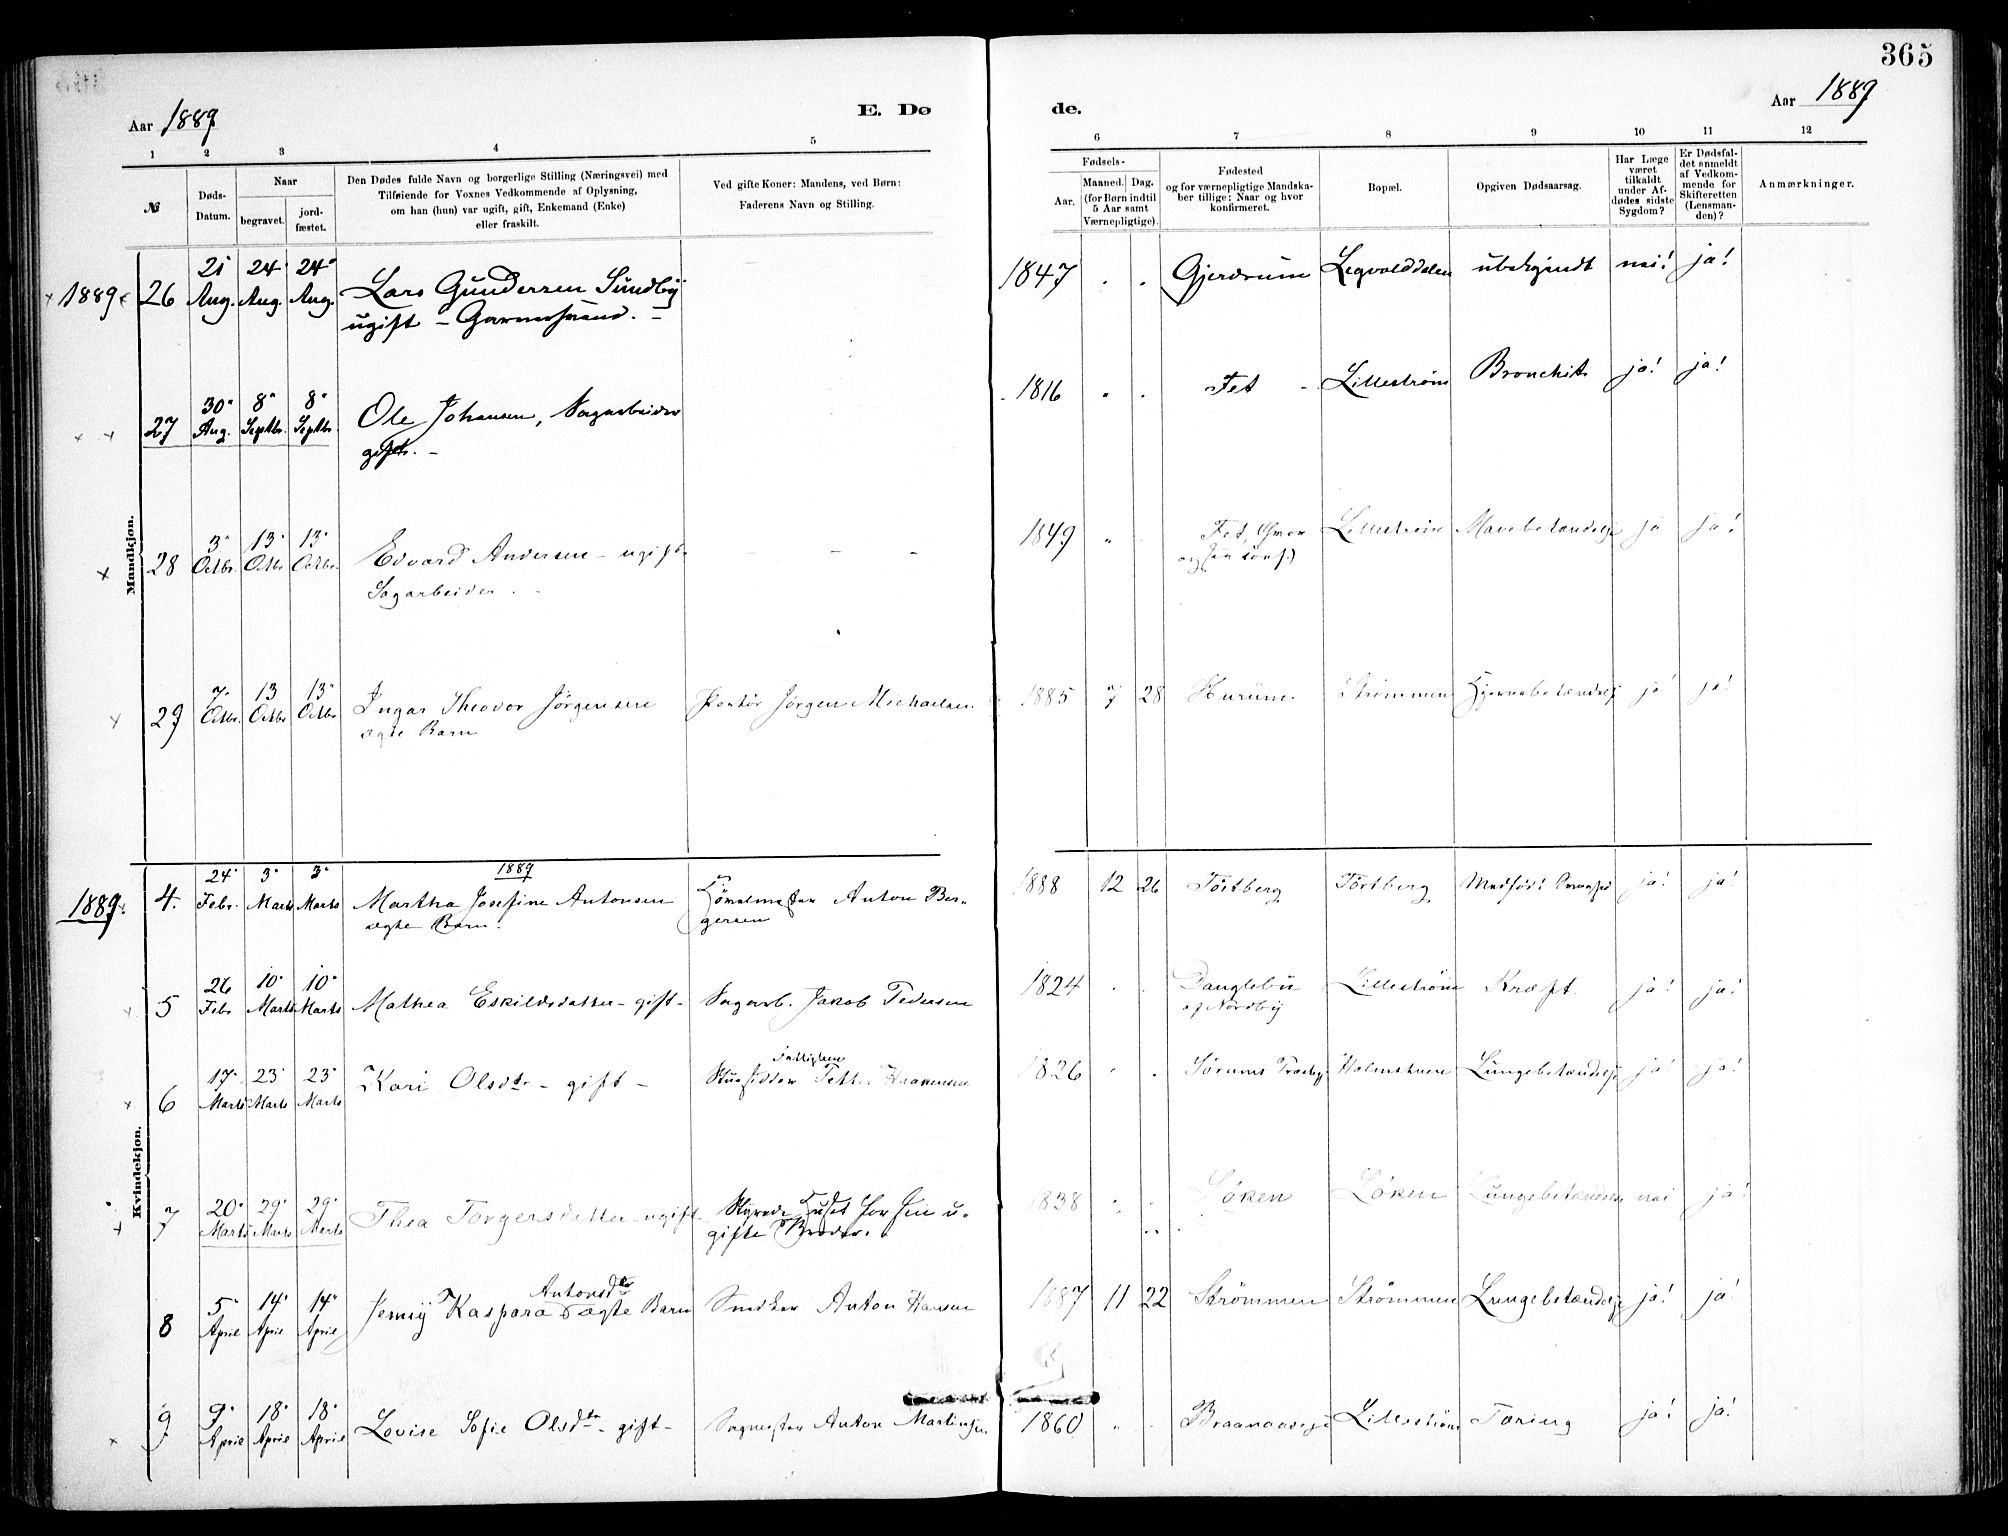 365
Aar 1889
E. Dø
de.
Aar 1889
1 2 3 4 5 6 7 8 9 10 11 12
№
Døds-
Datum.
Naar
begravet.
jord-
fæstet.
Den Dødes fulde Navn og borgerlige Stilling (Næringsvei) med
Tilføiende for Voxnes Vedkommende af Oplysning,
om han (hun) var ugift, gift, Enkemand (Enke)
eller fraskilt.
Ved gifte Koner: Mandens, ved Børn:
Faderens Navn og Stilling.
Fødsels-
Aar.
Maaned. Dag.
(for Børn indtil
5 Aar samt
Værnepligtige).
Fødested
og for værnepligtige Mandska-
ber tillige: Naar og hvor
konfirmeret.
Bopæl.
Opgiven Dødsaarsag.
Har Læge
været
tilkaldt
under Af-
dødes sidste
Sygdom?
Er Dødsfal-
det anmeldt
af Vedkom-
mende for
Skifteretten
(Lensman-
den)?
Anmærkninger.
Mandkjøn.
1889 26 21 Aug. 24 Aug. 24 Aug. Lars Gundersen Sundby 1847 Gjerdrum ubekjendt nei! ja!
ugift -
27 30 Aug. 8 Septbr. 8 Septbr. Ole Johansen, Sagarbeider 1816 Fet Lillestrøm Bronchit ja! ja!
gift. -
28 3 Octbr. 13 Octbr. 13 Octbr. Edvard Andersen - ugift 1849 Fet, (hvor Lillestrøm Mavebetændelse ja ja!
Sagarbeider og konf.)
29 7 Octbr. 13 Octbr. 13 Octbr. Ingar Theodor Jörgensen Jörgen Michaelsen 1885 7 28 Hurum Strømmen Hjernebetændelse ja! ja!
ægte Barn
Kvindekjøn.
1889
1889 4. 24 Febr. 3 Marts 3 Marts Martha Josefine Antonsen Anton Ber- 1888 12 26 ja! ja!
ægte Barn. gersen
5 26 Febr 10 Marts 10 Marts Mathea Eskildsdatter - gift - Sagarb. Jakob Pedersen 1824 Lillestrøm Kræft. ja! ja!
Nordby
6 17 Marts 23 Marts 23 Marts Kari Olsdtr - gift - 1826 Sørums Lungebetændelse ja! ja!
7 20 Marts 29 Marts 29 Marts Thea Torgersdatter - ugift Styrede Huset for sin u- 1838 Løken Løken Lungebetændelse nei ja!
gifte Broder.
Antonsdtr
8 5 April 14 April 14 April Jenny Kaspara ægte Barn Snedker Anton Hansen 1887 11 22 Strømmen Strømmen Lungebetændelse ja! ja!
9 9 April 18 April 18 April Lovise Sofie Olsdtr - gift - Sagmester Anton Martinsen 1860 Lillestrøm Tæring ja! ja!